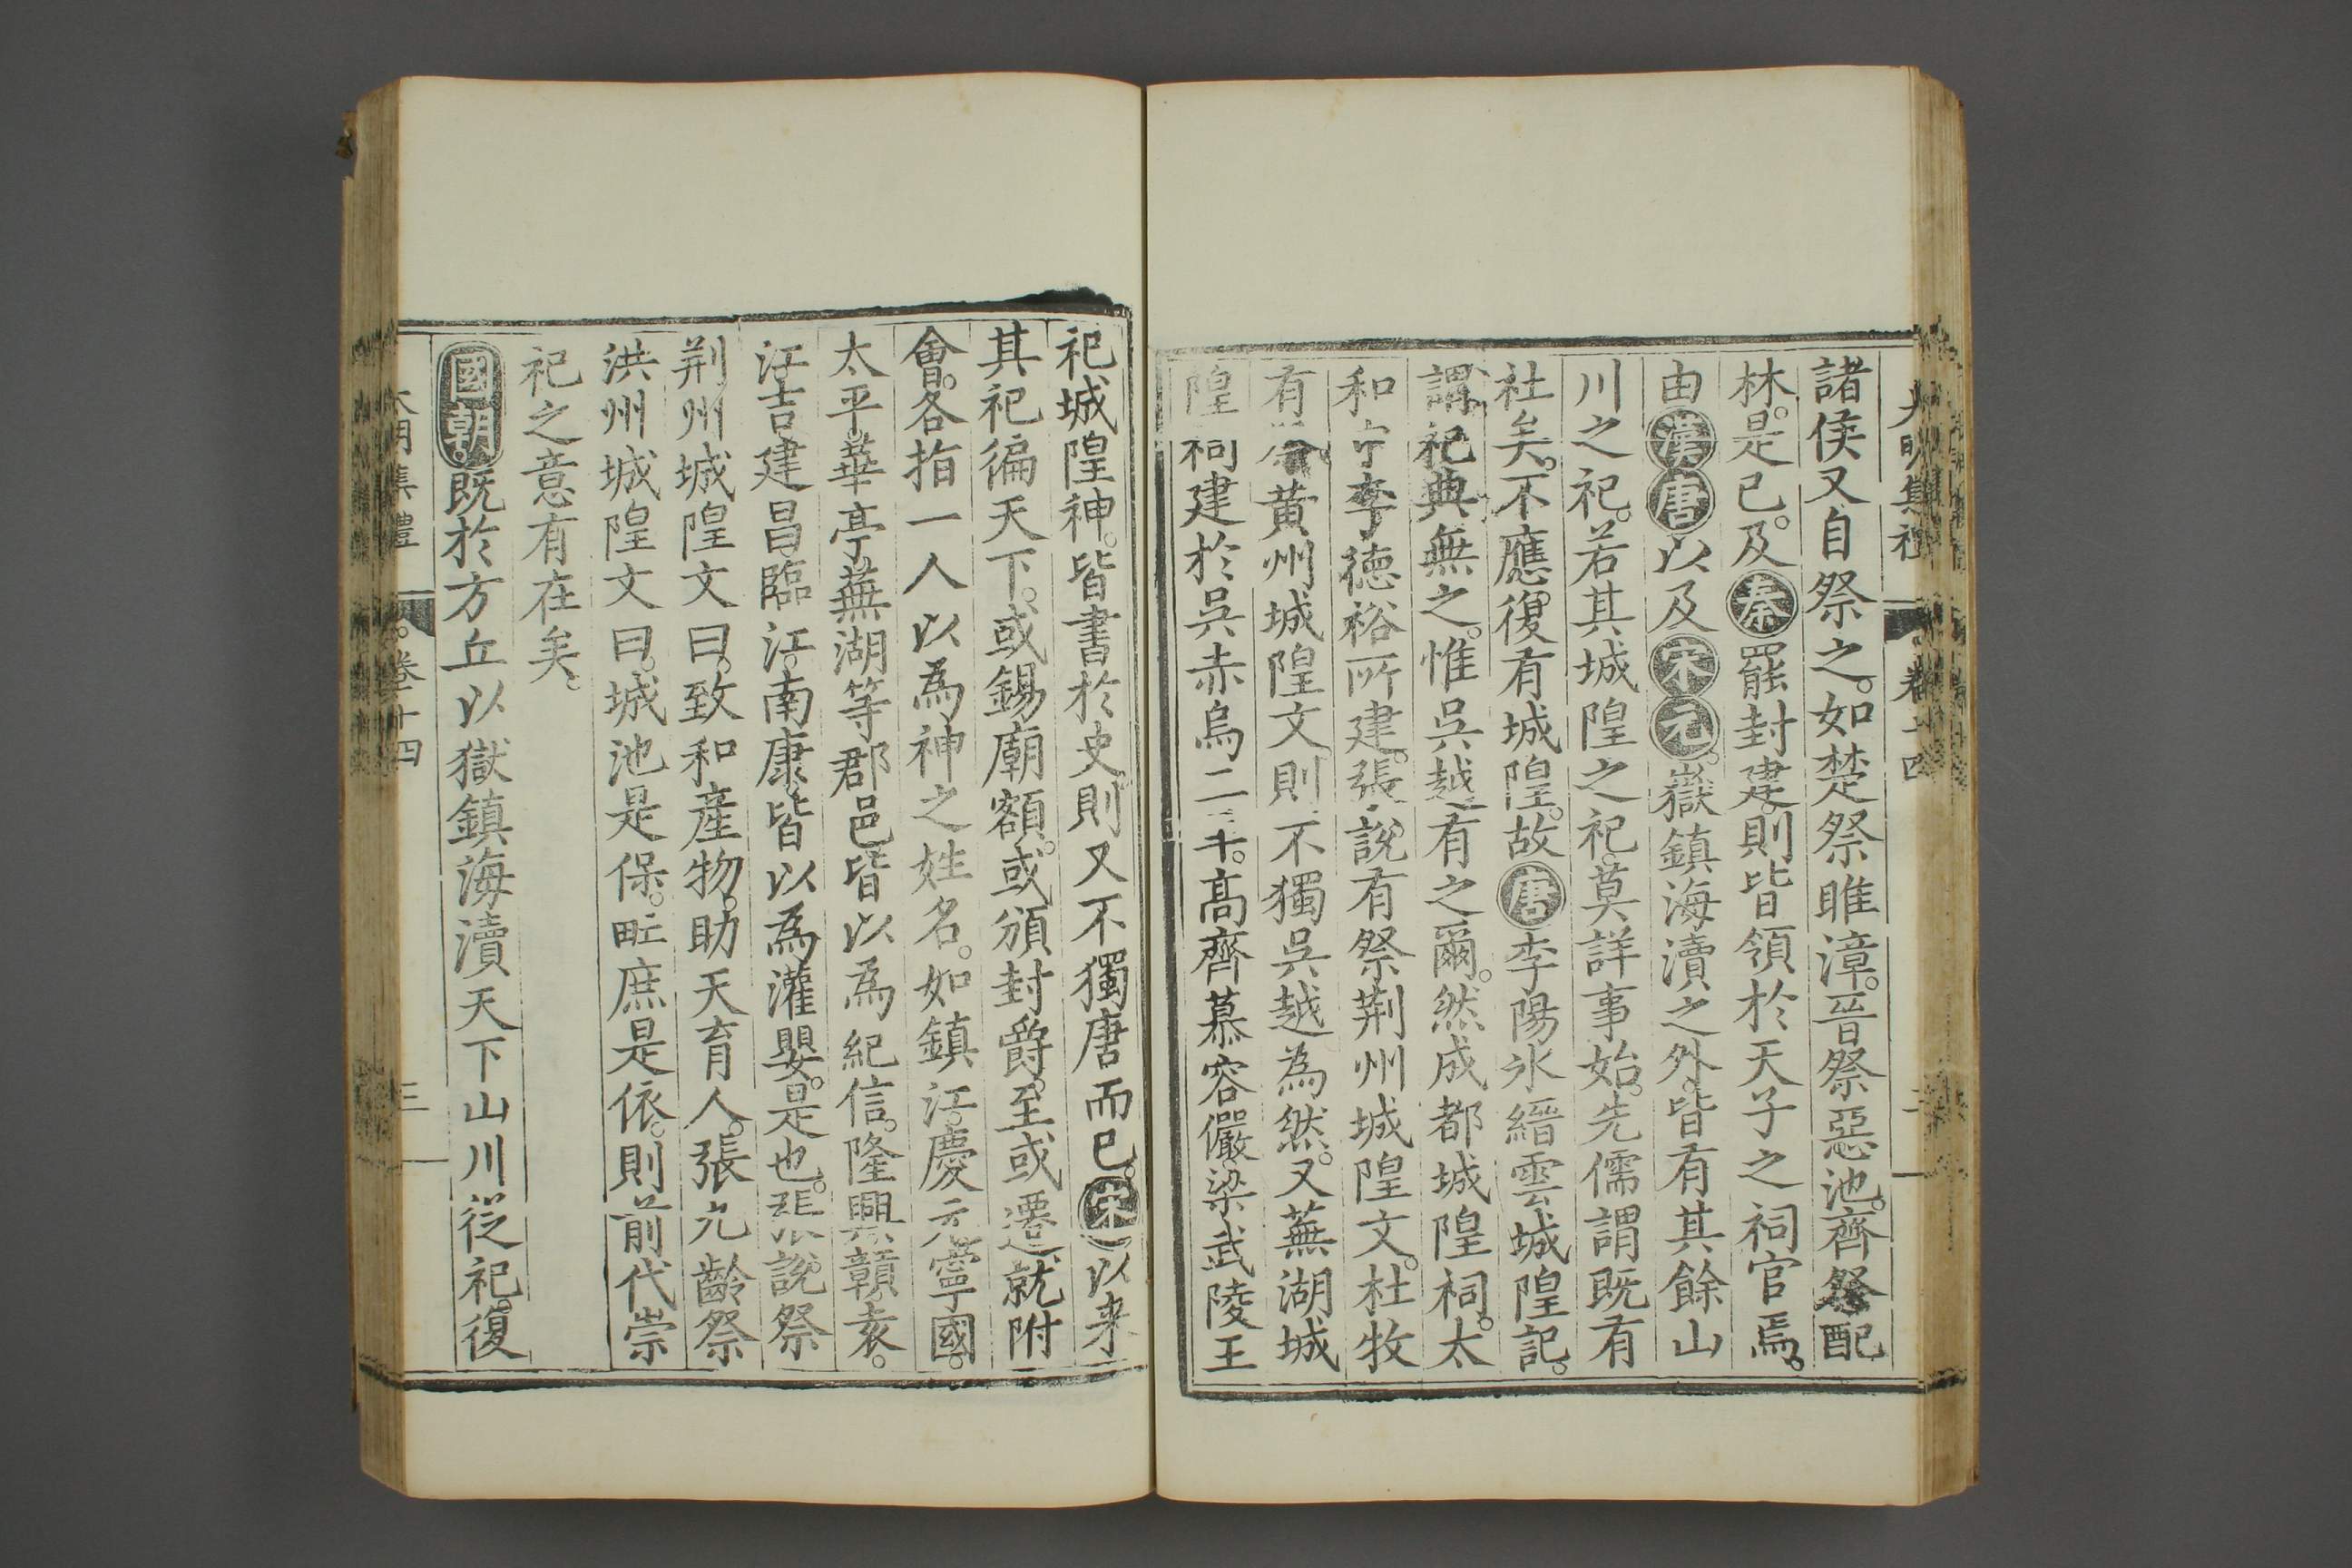 大明集禮 卷十四 二
諸侯又自祭之。如楚祭睢漳。晉祭惡池。齊祭配
林。是已。及秦罷封建。則皆領於天子之祠官焉。
由漢唐以及宋元。嶽鎮海瀆之外。皆有其餘山
川之祀。若其城隍之祀。莫詳事始。先儒謂既有
社矣。不應復有城隍。故唐李陽冰縉雲城隍記。
謂祀典無之。惟吳越有之爾。然成都城隍祠。太
和中李德裕所建。張說有祭荆州城隍文。杜牧
有祭黃州城隍文。則不獨吳越為然。又蕪湖城
隍祠建於吳赤烏二年。高齊慕容儼。梁武陵王
祀城隍神。皆書於史。則又不獨唐而已。宋以来
其祀徧天下。或錫廟額。或頒封爵。至或遷就附
會。各指一人以為神之姓名。如鎮江。慶元。寧國。
太平。華亭。蕪湖等郡邑皆以為紀信。隆興。贛。袁。
江。吉。建昌。臨江。南康。皆以為灌嬰。是也。張說祭
荆州城隍文曰。致和產物。助天育人。張九齡祭
洪州城隍文曰。城池是保。甿庶是依。則前代崇
祀之意有在矣。
國朝。既於方丘以嶽鎮海瀆天下山川從祀。復
大明集禮 卷十四 三